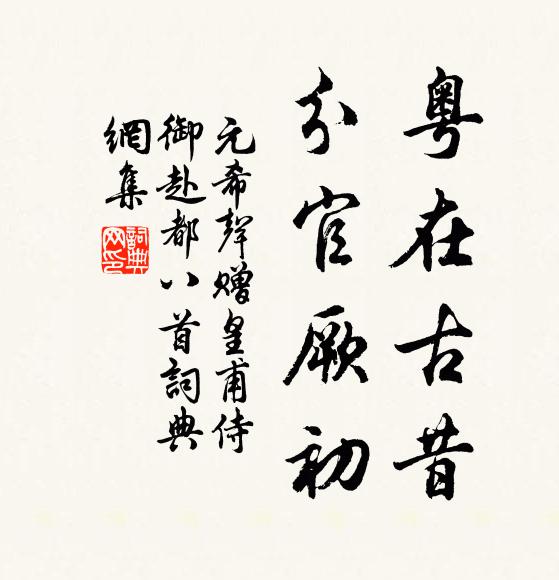 粵在古昔
分官厥初
元希聲贈皇甫侍
御赴都八首詞典
網集
詞典網印